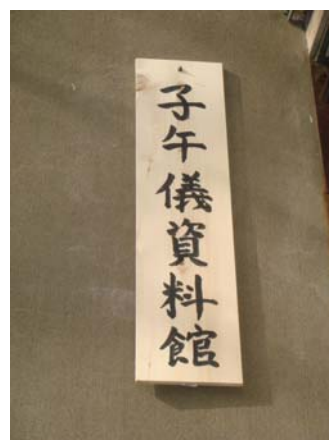 子午儀資料館